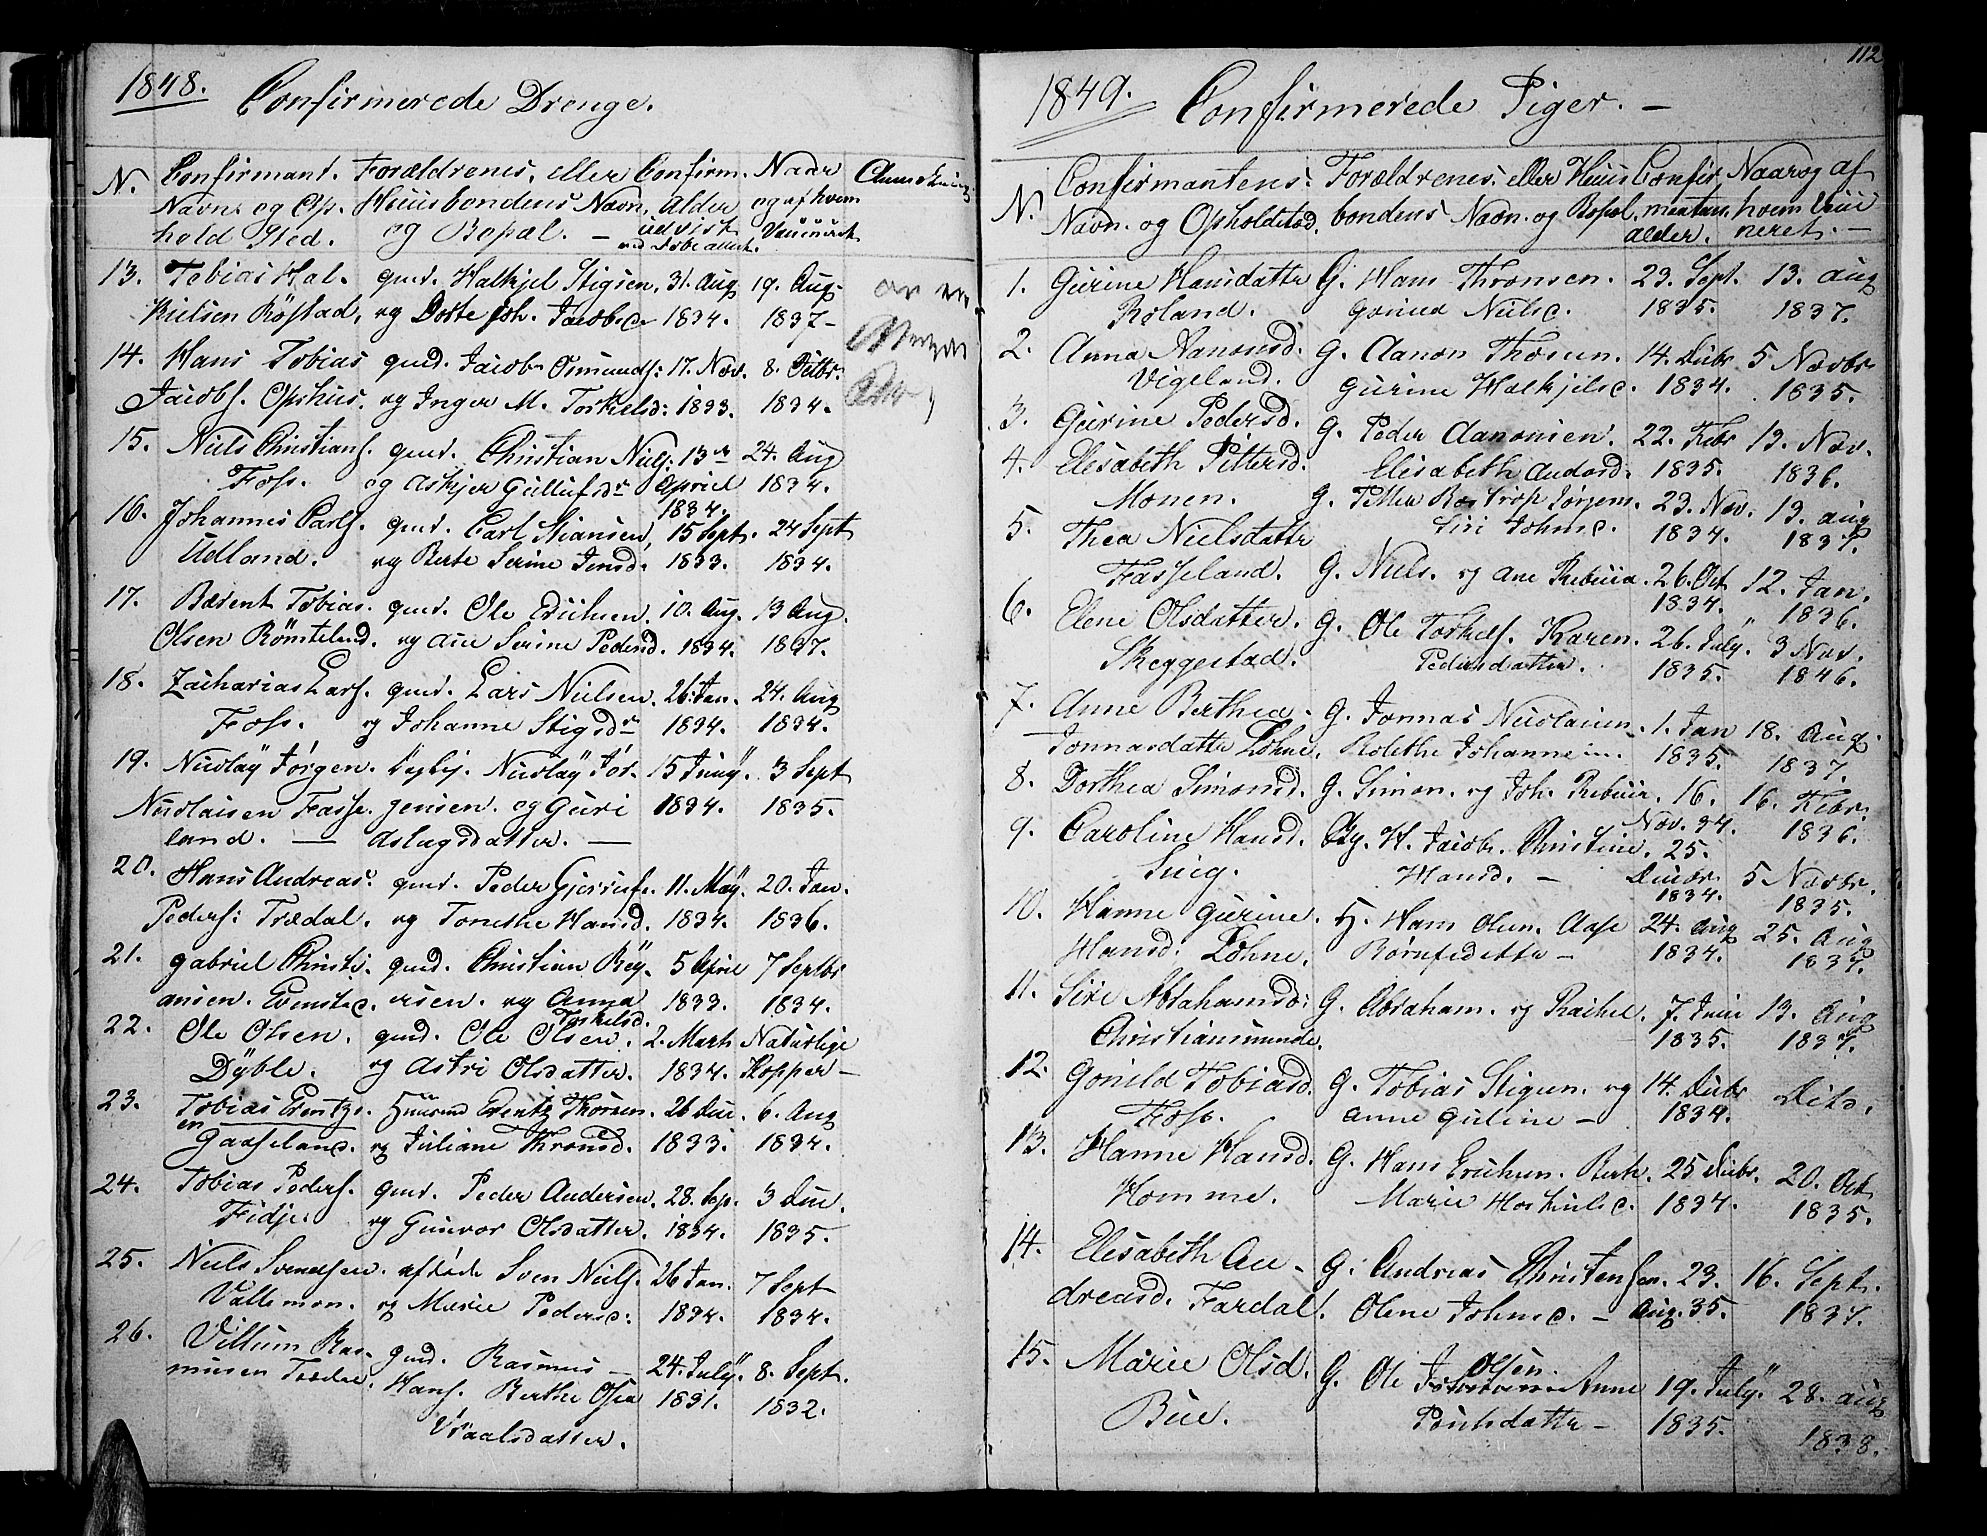 1848. Confirmerede Drenge.
N. Confirmant. Forældrenes, eller Confirm. Naar
Navn og Op- Huusbondens Navn, Alder og af hvem
hold Sted. og Bopæl. — udvist Vaccineret
13. Tobias Hal- gmd. Halkjel Stigsen, 31. Aug 19. Aug-
kielsen Röstad, og Dorte Joh. Jacobsd. 1834. 1837-
14. Hans Tobias gmd. Jacob Osmunds: 17. Nov. 8. Octbr.
Jacobs. Opshus. og Inger M. Torkelsd: 1833. 1834.
15. Niels Christians. gmd. Christian Niels: 13de 24. Aug
Foss. og Askjer Gullufsdr April 1834.
1834.
16. Johannes Carls. gmd. Carl Stiansen, 15 Sept. 24 Sept
Udland. og Berte Serine Jensd. 1833. 1834.
17. Berent Tobias. gmd. Ole Erichsen. 10. Aug. 13 Aug.
Olsen Römteland. og Ane Serine Pedersd. 1834. 1837.
18. Zacharias Lars. gmd. Lars Nielsen. 26. Jan. 24. Aug
Foss. og Johanne Stigsdr 1834. 1834.
19. Nicolaÿ Jörgen. Nicolaÿ Jör- 15 Junÿ. 3 Sept
Nicolaisen Fasse- gensen. og Guri 1834. 1835.
land. — Aslagsdatter. —
20. Hans Andreas gmd. Peder 11. Maÿ. 20. Jan.
Peders: Trædal. og Tonethe Hansd. 1834. 1836.
21. Gabriel Christi- gmd. Christian Rey- 5 April 7 Septbr
ansen. ersen. og Anna 1833. 1834.
Torkelsd.
22. Ole Olsen. gmd. Ole Olsen. 2. Marts Naturlige
Dÿble. og Astri Olsdatter. 1834. Kopper —
23. Tobias Gaaseland. Huusmd Thorsen. 26 Dec. 6. Aug
og Juliane Thronsd. 1833. 1834.
24. Tobias Peders. gmd. Peder Andersen. 28. Sep. 3 Dec.
Fidje. og Gunvor Olsdatter. 1834. 1835.
25. Niels Svendsen. afdöde Sven Niels. 26 Jan. 7 Sept
Vallemon. og Marie Pedersd: 1834. 1834.
26. Villum Ras- gmd. Rasmus — 24. Julÿ. 8. Sept.
musen Hans. Berthe Osea 1831. 1832.
112
1849. Confirmerede Piger. —
N. Confirmantens: Forældrenes. eller Huus Confir Naar og af
Navn. og Opholdsted. bondens Navn. og Bopæl. mantens hvem Vacci
alder. neret. —
1. Gurine Hansdatter G. Hans Thronsen. 23. Sept. 13. Aug
Roland. Nielsd. 1835. 1837.
2. Anna Aanonsd. G. Aanon Thorsen. 14. Decbr 5 Novbr
Vigeland. Gurine Halkjelsd. 1834. 1835.
3. Gurine Pedersd. G. Peder Aanonsen. 22. Febr 13. Nov.
4. Elisabeth Pittersd. Elisabeth 1835. 1836.
Monen. G. Petter Rostrop Jörgens. 23. Nov. 13. Aug
5. Thea Nielsdatter Siri Johnsd. 1834. 1837.
Fasseland. G. Niels. og Ane Rebecca. 26. Oct 12. Jan.
1834. 1836.
6. Elene Olsdatter. G. Ole Torkels. Karen. 26. July. 3 Nov.
Skeggestad. Pedersdatter. 1835. 1846.
7. Anne Berthea G. Jonnas Nicolaisen. 1. Jan 18. Aug.
Jonnasdatter Löhne. Johannesen. 1835. 1837.
8. Dorthea Simonsd. G. Simon. og Joh. Rebecca. 16. 16. Febr.
Nov. 34. 1836.
9. Caroline Hansd. H. Jacob. Christine. 25.
Hansd. — Decbr 5 Novbr.
1834. 1835.
10. Hanne Gurine. H. Hans Olsen. Aase 24. Aug 25. Aug
Hansd. Löhne. 1834. 1837.
11. Siri Abrahamsd: G. Abraham. og Rachel. 7. Juni 13. Aug
Christiansmunde. 1835. 1837.
12. Gonild Tobiasd. G. Tobias Stigsen. og 14. Decbr Dito.
Foss. Anne Guline — 1834.
13. Hanne Hansd. G. Hans Erichsen. Berte 25 Decbr. 20. Oct
Homme. Marie 1834. 1835.
14. Elisabeth An- G. Andreas Christensen. 23. 16. Sept.
dreasd. Fardal. Olene Johnsd. — Aug. 35. 1837.
15. Marie Olsd. G. Ole Olsen. Anne 19. July. 28. Aug
Bue. 1835. 1838.